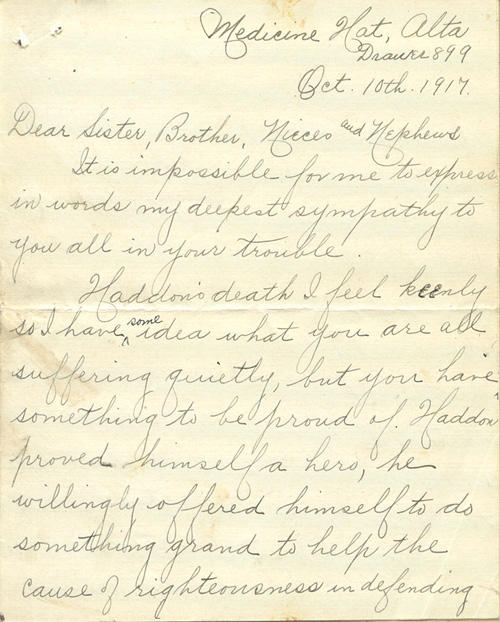 Medicine Hat, Alta
Drawer 899
Oct. 10th. 1917.
Dear Sister, Brother, Nieces and Nephews
It is impossible for me to express
in words my deepest sympathy to
you all in your trouble.
Haddon's death I feel keenly
so I have some idea what you are all
suffering quietly, but you have
something to be proud of. Haddon
proved himself a hero, he
willingly offered himself to do
something grand to help the
cause of righteousness in defending